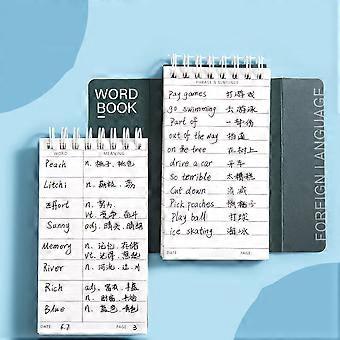 WORD
BOOK
PHRASE & SENTENCE
Pay games 打游戏
go swimming 去游泳
Part of 一部份
out of the way 挡道
on the tree 在树上
drive a car 开车
so terrible 太糟糕
Cut down
Pick peaches 摘桃子
Play ball 打球
ice skating
DATE PAGE
FOREIGN LANGUAGE
WORD MEANING
Peach n. 桃子, 桃色
Litchi n. 荔枝,
Effort n. 努力
vt. 奋斗
Sunny adj. 晴天, 晴朗
Memory n. 记忆, 存储
vt. 记得, 想起
River n. 河流,
Rich adj. 富有, 丰富
n.
Blue n. 蓝色, 青色
DATE PAGE 3